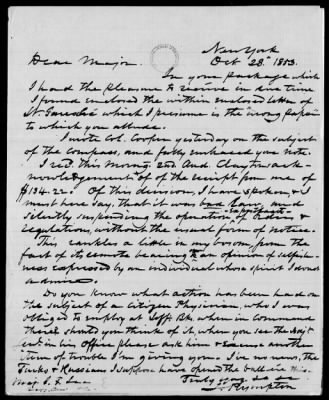 New York
Oct 28th 1853.
Dear Major.
In your package which
I had the pleasure to receive in due time
I found enclosed the within enclosed letter of
Lt. which I presume is the wrong paper
to which you allude.
I wrote Col. Cooper yesterday on the subject
of the compass, and fully embraced your note.
I recd this morng 2nd Aud Clayton ack-
nowledgement of the receipt from me of
$134.22. Of this decision, I have spoken, & I
must here say, that it was bad Law, and
silently suspending the operation of Orders &
regulations, without the usual form of notice.
This rankles a little in my bosom, from the
fact of its remote bearing to an opinion of selfish-
ness expressed by an individual whose spirit I do not
admire.
Do you know what action has been had on
the subject of a Citizen Physician, who I was
obliged to employ at Jeff. Bks. when in command
there? should you think of it, when you see the
in his office please ask him & excuse another
item of trouble I'm giving you. I've no news, the
Turks & Russians I suppose have opened the ball ere this.
Truly yours
J. Plympton
Maj. J. F. Lee